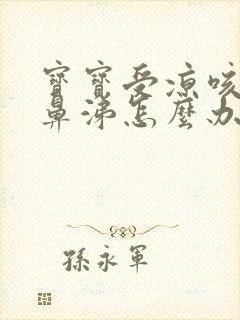 寶寶受凉咳
鼻涕怎麼办
孫永軍